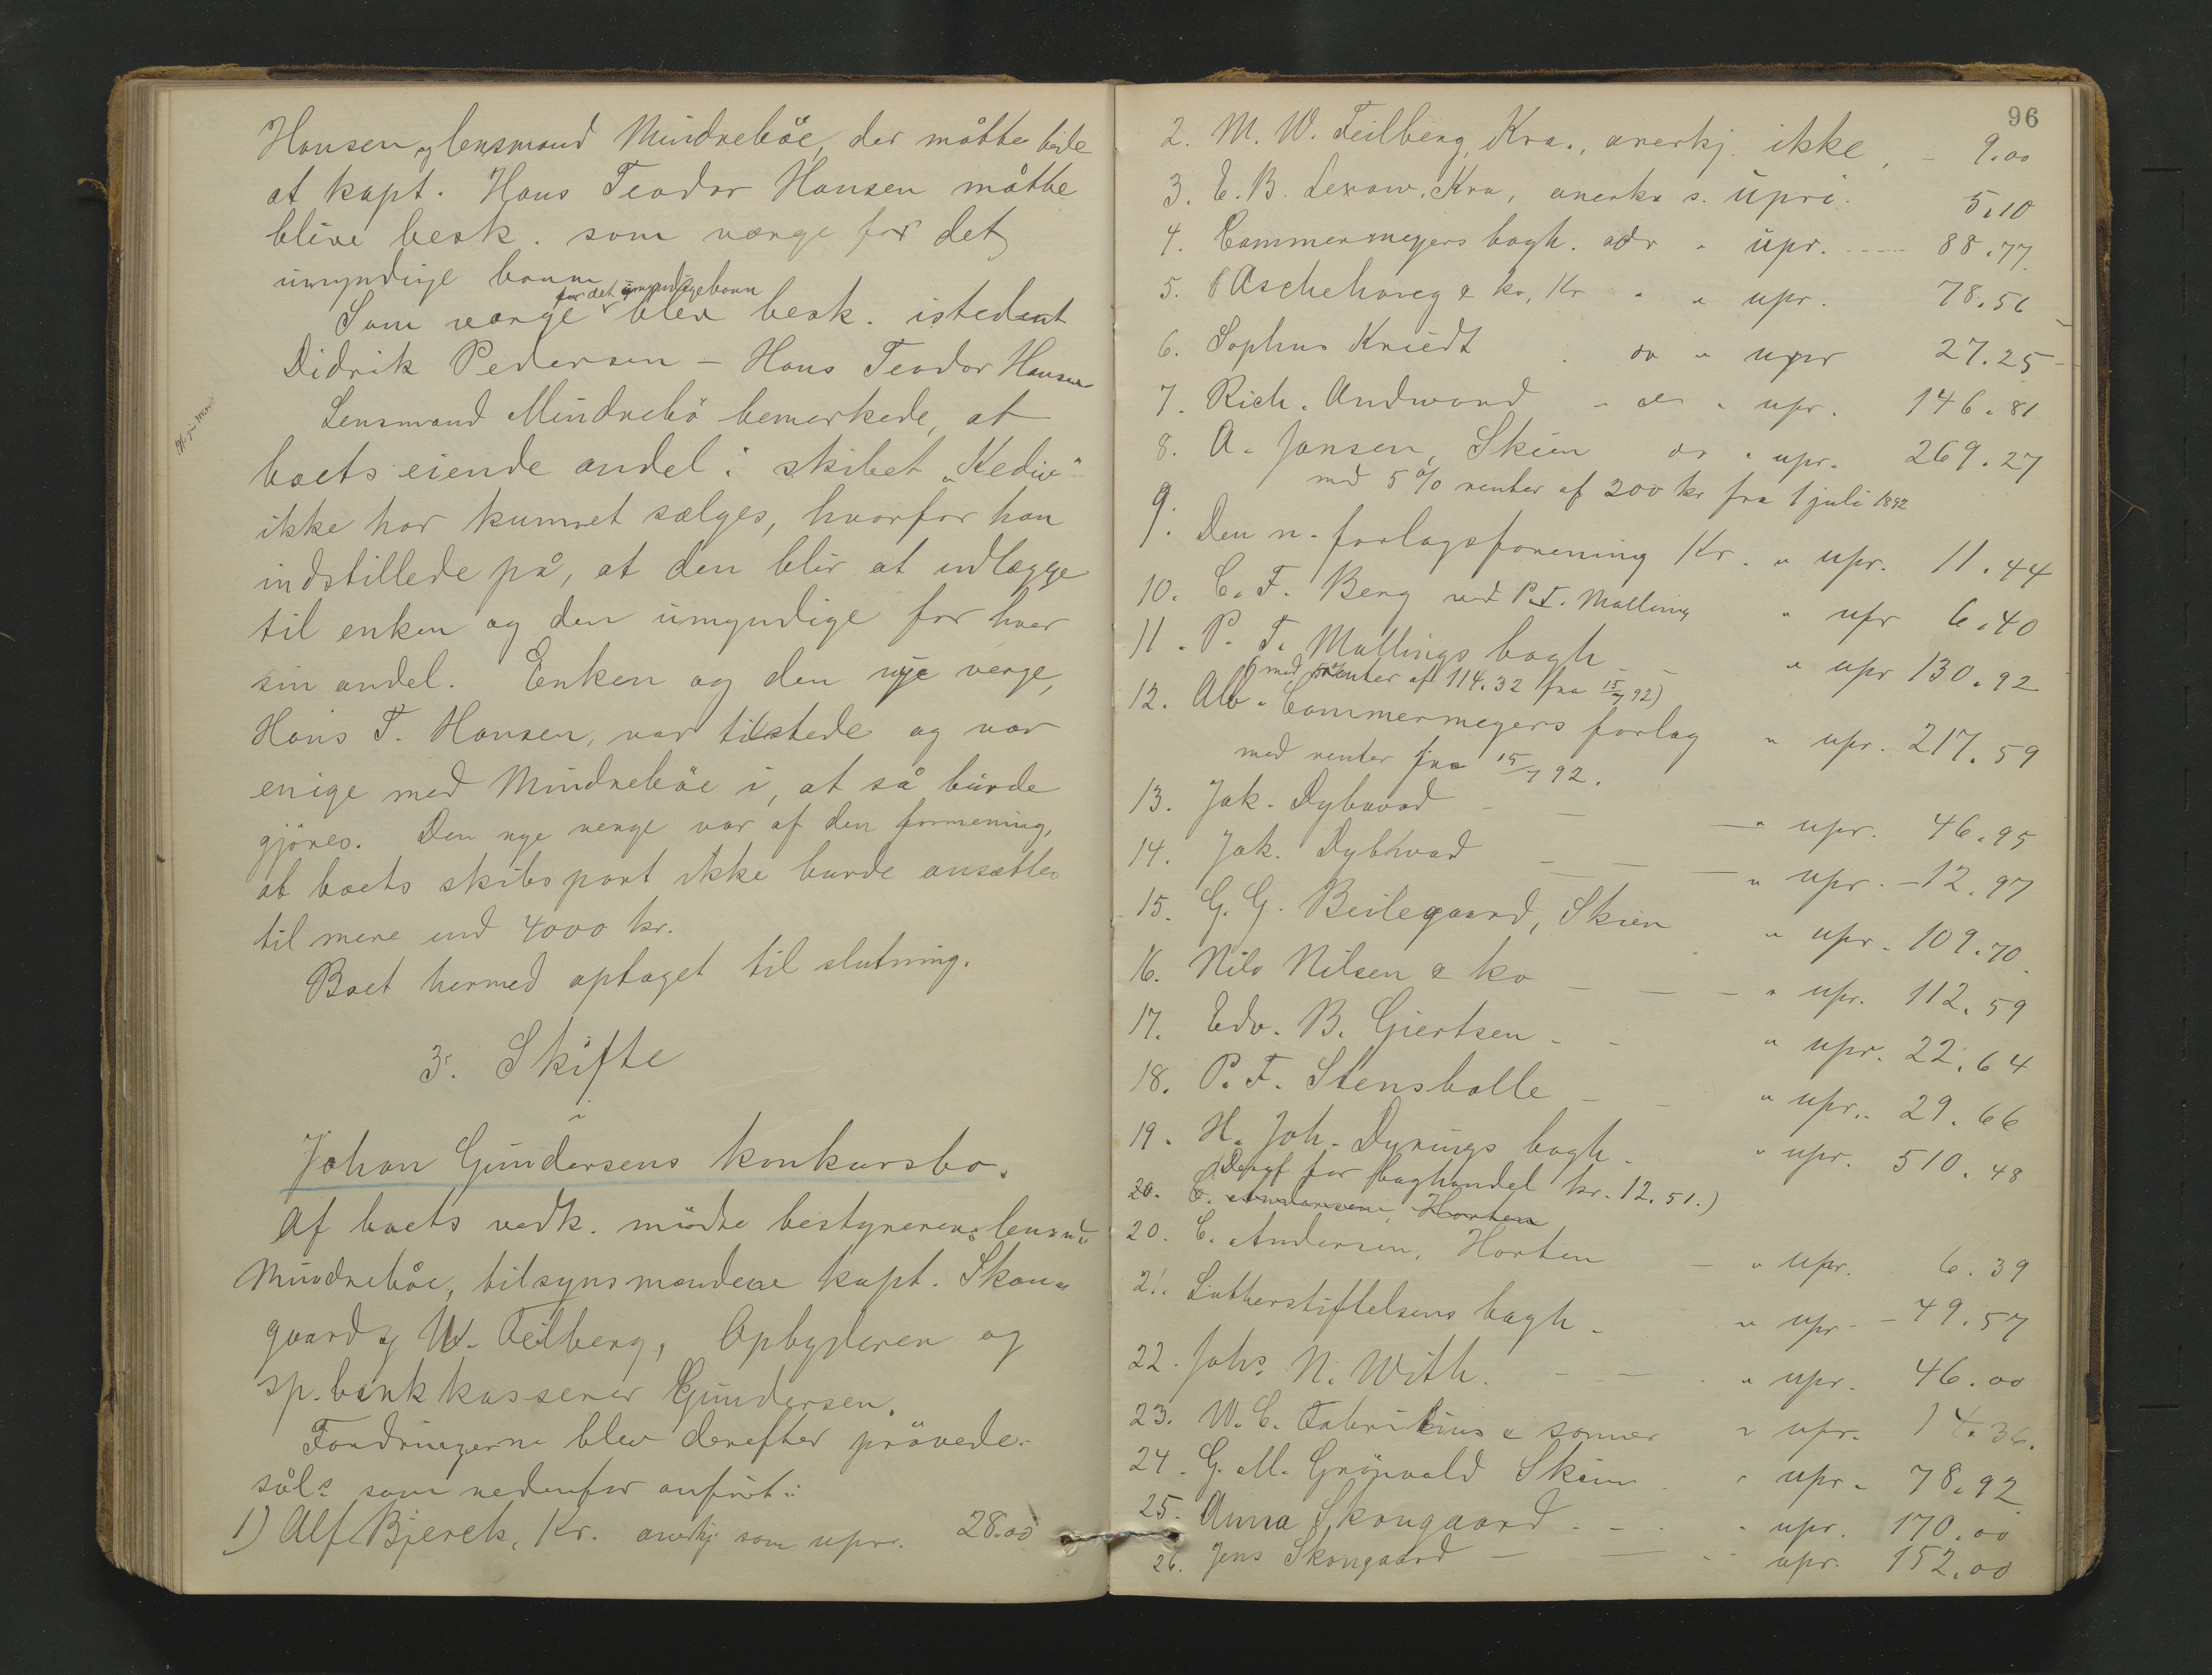 Hansen og lensmand Mindrebøe, der måtte bede
at kapt. Hans Teodor Hansen måtte
blive besk. som værge for det
umyndige barn
for det umyndige barn
Som værge blev besk. istedent
Didrik Pedersen – Hans Teodor Hansen
Lensmand Mindrebö bemerkede, at
boets eiende andel i skibet "Kediv"
ikke har kunnet sælges, hvorfor han
indstillede på, at den blir at udlægge
til enken og den umyndige for hver
sin andel. Enken og den nye verge,
Hans T. Hansen, var tilstede og var
enige med Mindrebøe i, at så burde
gjöres. Den nye verge var af den formening,
at boets skibspart ikke burde ansættes
til mere end 4000 kr.
Boet hermed optaget til slutning.
3. Skifte
i
Johan Gundersens konkursbo.
Af boets vedk. mödte bestyreren lensmd
Mindrebøe, tilsynsmændene kapt. Skou-
gaard og W. Feilberg, Opbyderen og
sp.bankkasserer Gundersen.
Fordringerne blev derefter prövede
sål. som nedenfor anfört:
1) Alf Bjerck, Kr. anerkj som upr. 28.00
96
2. M. W. Feilberg, Kra., anerkj. ikke, - 9.00
3. E. B. Lexow. Kra, anerk. s. upri. 5.10
4. Cammermeyers bogh. do " upr. 88.77
5. Aschehoug & ko, Kr " " upr. 78.56
6. Sophus Kriedt do " upr 27.25
7. Rich. Andvord - do " upr. 146.81
8. A. Jansen, Skien do " upr. 269.27
med 5 % renter af 200 kr fra 1 juli 1892
9. Den n. forlagsforening Kr. " upr. 11.44
10. C. F. Berg ved P. T. Malling " upr 6.40
11. P. T. Mallings bogh - - " upr 130.92
(med renter af 114.32 fra 15/7 92)
12. Alb. Cammermeyers forlag " upr. 217.59
med renter fra 15/7 92.
13. Jak. Dybwad - — " upr. 46.95
14. Jak. Dybwad - — " upr. - 12.97
15. G. G. Beilegaard, Skien " upr. 109.70
16. Nils Nilsen & ko - — - " upr. 112.59
17. Edv. B. Giertsen - - " upr. 22.64
18. P. F. Stensballe - - " upr. 29.66
19. H. Joh. Dyrings bogh. " upr. 510.48
for boghandel kr. 12.51.)
20. C. Andersen, Horten
20. C. Andersen, Horten - " upr. 6.39
21. Lutherstiftelsens bogh. " upr. - 49.57
22. Johs. N. With. - — " upr. 46.00
23. W. C. Fabritius & sönner " upr. 14.36.
24. G. M. Grönvold Skien " upr. 78.92
25. Anna Skougaard - - " upr. 170.00
26. Jens Skougaard — — " upr. 152.00